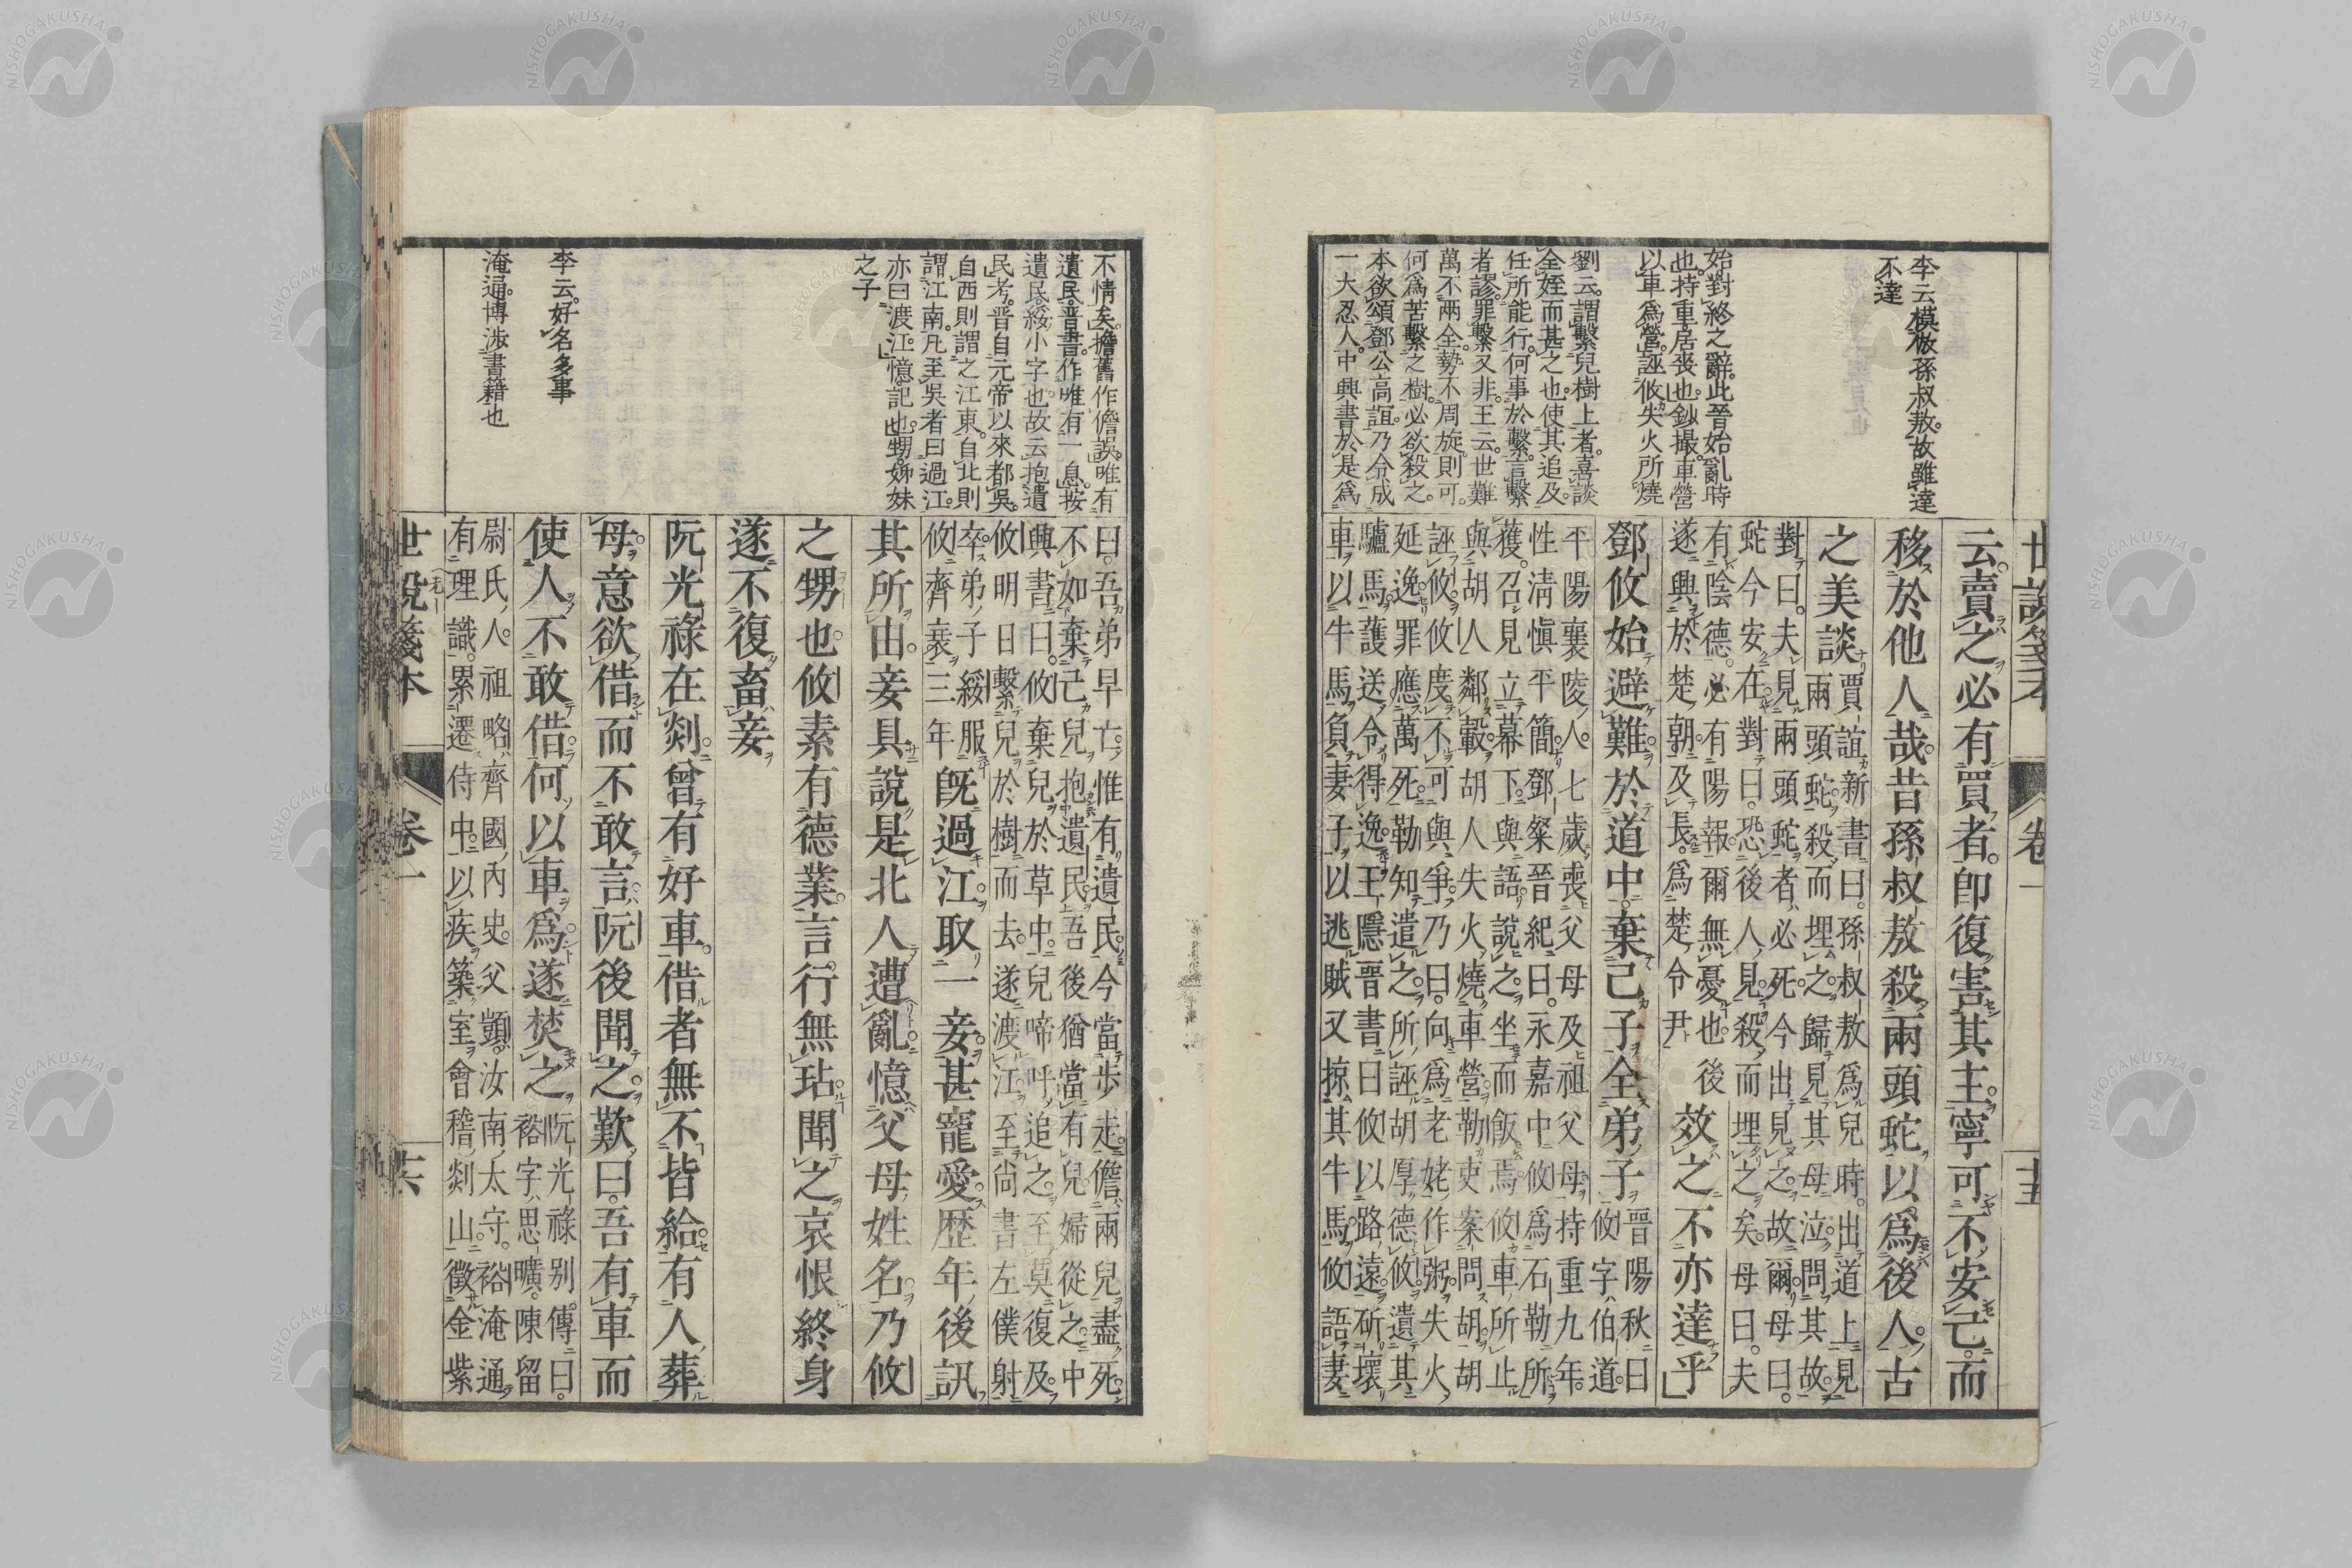 李云模倣孫叔敖故雖達
不達
始對終之辭此晉始亂時
也持重居喪也鈔撮車營
以車爲營誣攸失火所燒
劉云謂繫兒樹上者喜談
全姪而甚之也使其追及
任所能行何事於繫言繫
者謬罪繫又非王云世難
萬不兩全勢不周旋則可
何爲苦繫之樹必欲殺之
本欲頌鄧公高誼乃令成
一大忍人中興書於是爲
世說箋本 卷一 十五
云賣之必有買者。即復害其主寧可不安己。而
移於他人哉。昔孫叔敖殺兩頭蛇以爲後人。古
之美談
賈誼新書曰孫叔敖爲兒時。出道上見
兩頭蛇殺而埋之。歸見其母泣問其故。
對曰。夫見兩頭蛇者必死。今出見之。故爾。母曰。
蛇今安在。對曰。恐後人見。殺而埋之矣。母曰。夫
有陰德。必有陽報。爾無憂也。後
遂興於楚朝及長。爲楚令尹
效之不亦達乎
鄧攸始避難於道中。棄己子全弟子
晉陽秋曰
攸字伯道。
平陽襄陵人七歲喪父母及祖父母。持重九年。
性淸愼平簡。鄧粲晉紀曰。永嘉中攸爲石勒所
獲。召見立幕下。與語說之。坐而飯焉。攸車所止
與胡人鄰轂。胡人失火燒車營。勒吏案問胡。胡
誣攸。攸度不可與爭。乃曰。向爲老姥作粥。失火
延逸。罪應萬死。勒知遣之。所誣胡厚德攸。遺其
驢馬護送令得逸。王隱晉書曰攸以路遠。斫壞
車以牛馬負妻子以逃賊又掠其牛馬。攸語妻
不情矣擔舊作儋誤唯有
遺民晉書作唯有一息按
遺民綏小字也故云抱遺
民考晉自元帝以來都吳
自西則謂之江東自北則
謂江南凡至吳者曰過江
亦曰渡江憶記也甥姊妹
之子
李云好名多事
淹通博涉書籍也
曰。吾弟早亡。惟有遺民。今當步走。儋兩兒盡死。
不如棄己兒抱遺民。吾後猶當有兒。婦從之。中
興書曰。攸棄兒於草中。兒啼呼追之。至莫復及。
攸明日繫兒於樹而去。遂渡江。至尚書左僕射
卒。弟子綏服
攸齊衰三年
既過江。取一妾甚寵愛。歷年後訊
其所由。妾具說是北人遭亂。憶父母姓名。乃攸
之甥也。攸素有德業。言行無玷。聞之哀恨終身
遂不復畜妾
阮光祿在剡。曾有好車。借者無不皆給。有人葬
母。意欲借而不敢言。阮後聞之歎曰。吾有車而
使人不敢借。何以車爲。遂焚之
阮光祿別傳曰。
裕字思曠。陳留
尉氏人。祖略齊國內史。父顗汝南太守。裕淹通
有理識。累遷侍中。以疾築室會稽剡山。徵金紫
世說箋本 卷一 十六